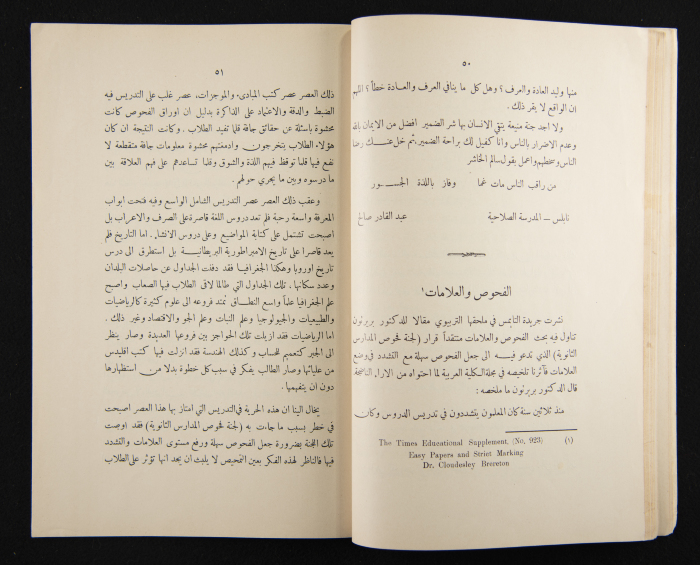 ٥٠
منها وليد العادة والعرف ؟ وهل كل ما ينافي العرف والعادة خطأ ؟ اللهم
ان الواقع لا يقر ذلك .
ولا اجد جنة منيعة يتقي الانسان بها شر الضمير افضل من الايمان بالله
وعدم الاضرار بالناس وانا كفيل لك براحة الضمير، ثم خل عنك رضا
الناس وسخطهم واعمل بقول سالم الخاسر
من راقب الناس مات غما وفاز باللذة الجسور
نابلس – المدرسة الصلاحية عبد القادر صالح
الفحوص والعلامات١
نشرت جريدة التايمس في ملحقها التربوي مقالا للدكتور بريرتون
تناول فيه بحث الفحوص والعلامات منتقداً قرار (لجنة فحوص المدارس
الثانوية) الذي تدعو فيه الى جعل الفحوص سهلة مع التشدد في وضع
العلامات فآثرنا تلخيصه في مجلة الكلية العربية لما احتواه من الاراء الناضجة.
قال الدكتور بريرتون ما ملخصه :
منذ ثلاثين سنة كان المعلمون يتشددون في تدريس الدروس وكان
(١) The Times Educational Supplement, (No, 923)
Easy Papers and Strict Marking
Dr. Cloudesley Brereton
٥١
ذلك العصر عصر كتب المبادىء والموجزات، عصر غلب على التدريس فيه
الضبط والدقة والاعتماد على الذاكرة بدليل ان اوراق الفحوص كانت
محشوة باسئلة عن حقائق جافة قلما تفيد الطلاب . وكانت النتيجة ان كان
هؤلاء الطلاب يتخرجون وادمغتهم محشوة معلومات جافة متقطعة لا
نفع فيها قلما توقظ فيهم اللذة والشوق وقلما تساعدهم على فهم العلاقة بين
ما درسوه وبين ما يجري حولهم .
وعقب ذلك العصر عصر التدريس الشامل الواسع وفيه فتحت ابواب
المعرفة واسعة رحبة فلم تعد دروس اللغة قاصرة على الصرف والاعراب بل
اصبحت تشتمل على كتابة المواضيع وعلى دروس الانشاء . اما التاريخ فلم
يعد قاصرا على تاريخ الامبراطورية البريطانية بل استطرق الى درس
تاريخ اوروبا وهكذا الجغرافيا فقد دفنت الجداول عن حاصلات البلدان
وعدد سكانها . تلك الجداول التي طالما لاقى الطلاب فيها الصعاب واصبح
علم الجغرافيا علماً واسع النطاق تمتد فروعه الى علوم كثيرة كالرياضيات
والطبيعيات والجيولوجيا وعلم النبات وعلم الجو والاقتصاد وغير ذلك .
اما الرياضيات فقد ازيلت تلك الحواجز بين فروعها العديدة وصار ينظر
الى الجبر كتعميم للحساب وكذلك الهندسة فقد انزلت فيها كتب اقليدس
من عليائها وصار الطالب يفكر في سبب كل خطوة بدلا من استظهارها
دون ان يتفهمها .
يخال الينا ان هذه الحرية في التدريس التي امتاز بها هذا العصر اصبحت
في خطر بسبب ما جاءت به (لجنة فحوص المدارس الثانوية) فقد اوصت
تلك اللجنة بضرورة جعل الفحوص سهلة ورفع مستوى العلامات والتشدد
فيها فالناظر لهذه الفكر بعين التمحيص لا يلبث ان يجد انها تؤثر على الطلاب